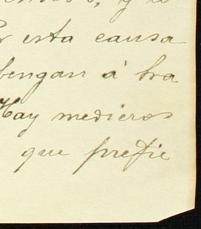 y lo
Por esta causa
bengan á tra
Hay medieros
que prefie